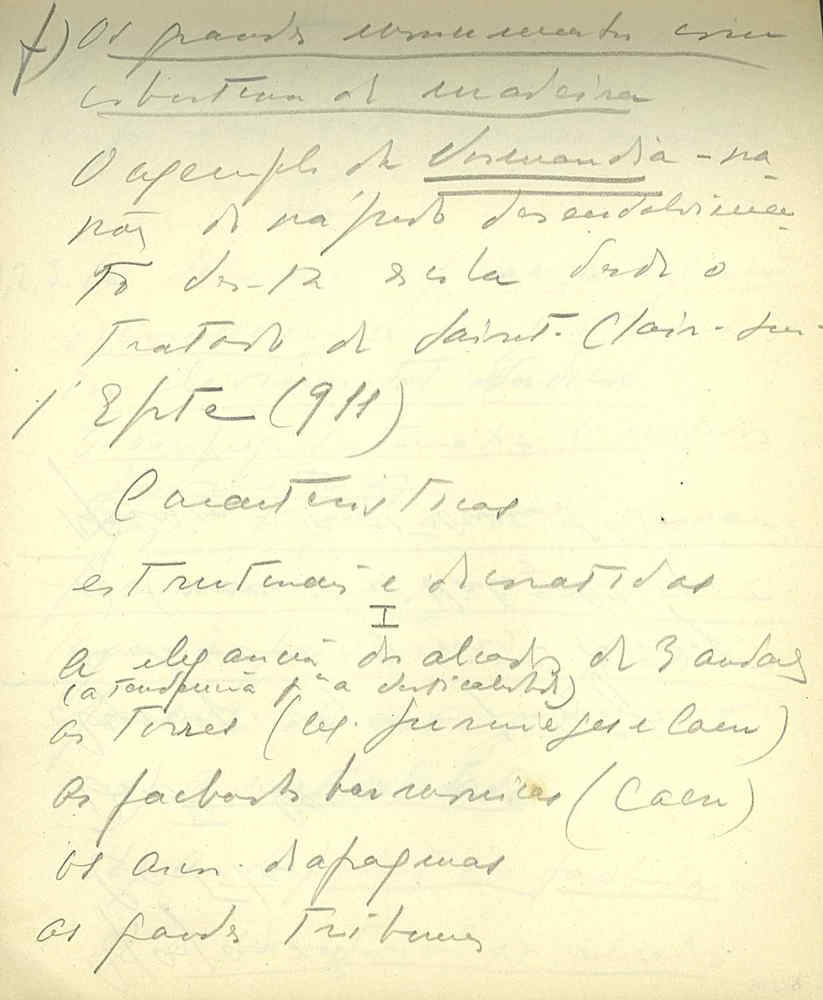 f) Os grandes monumentos com
cobertura de madeira
O exemplo da Normandia - ra-
zões do rápido desenvolvimen-
to desta escola desde o
Tratado de Saint-Clair-sur-
l'Epte (911)
Características
estruturais e decorativas
I
A elegancia dos alçados de 3 andares
(a tendencia pª a verticalidade)
as torres (ex. Jumièges e Caen)
As fachadas harmonicas (Caen)
os arcos diafragmas
as grandes tribunas